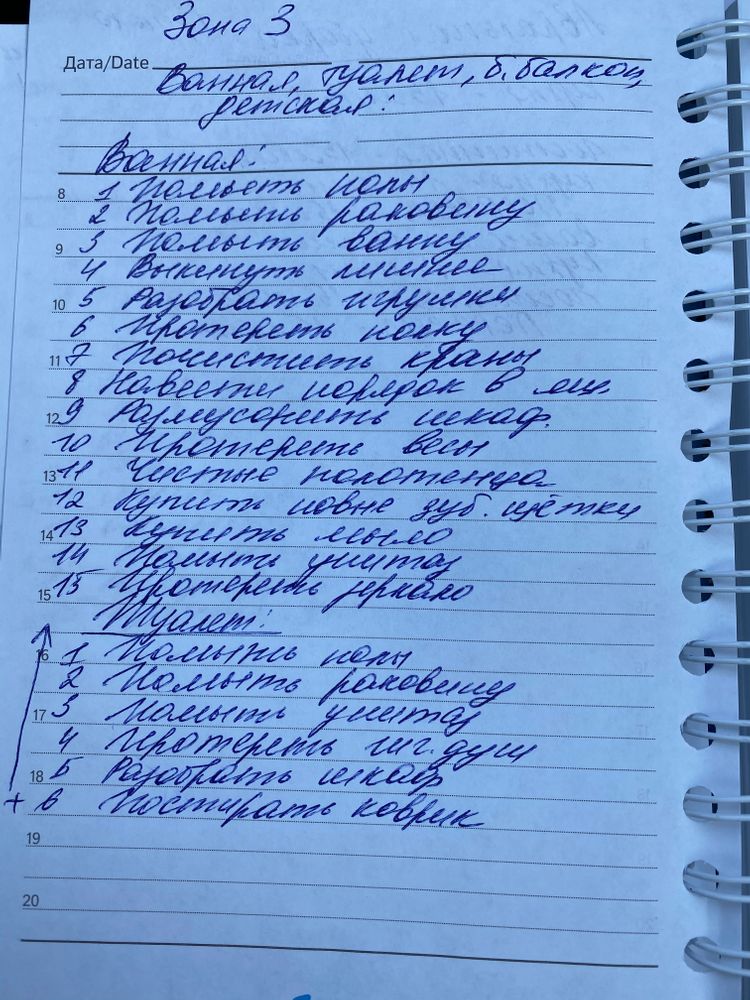 Зона 3
Дата/Date
Ванная, туалет, б. балкон,
детская:
Ванная:
8 1 Помыть полы
2 Помыть раковину
9 3 Помыть ванну
4 Выкинуть лишнее
10 5 Разобрать игрушки
6 Протереть полку
11 7 Почистить краны
8 Навести порядок в ящ.
12 9 Размусорить шкаф.
10 Протереть весы
13 11 Чистые полотенца
12 Купить новые зуб. щётки
14 13 Купить мыло
14 Помыть унитаз
15 15 Протереть зеркало
Туалет:
16 1 Помыть полы
2 Помыть раковину
17 3 Помыть унитаз
4 Протереть гиг. душ
18 5 Разобрать шкаф
+ 6 Постирать коврик
19
20